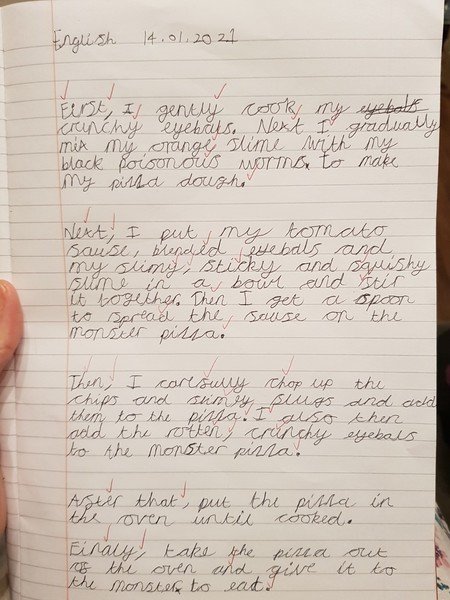 English 14.01.2021
First, I gently cook my eyeballs
crunchy eyeballs. Next I gradually
mix my orange slime with my
black poisonous worms. to make
my pizza dough.
Next, I put my tomato
sause, blended eyeballs and
my slimy, sticky and squishy
slime in a bowl and stir
it together. Then I get a spoon
to spread the sause on the
monster pizza.
Then, I carefully chop up the
chips and slugs and add
them to the pizza. I also then
add the rotten, crunchy eyeballs
to the monster pizza.
After that, put the pizza in
the oven until cooked.
Finaly, take the pizza out
of the oven and give it to
the monster to eat.